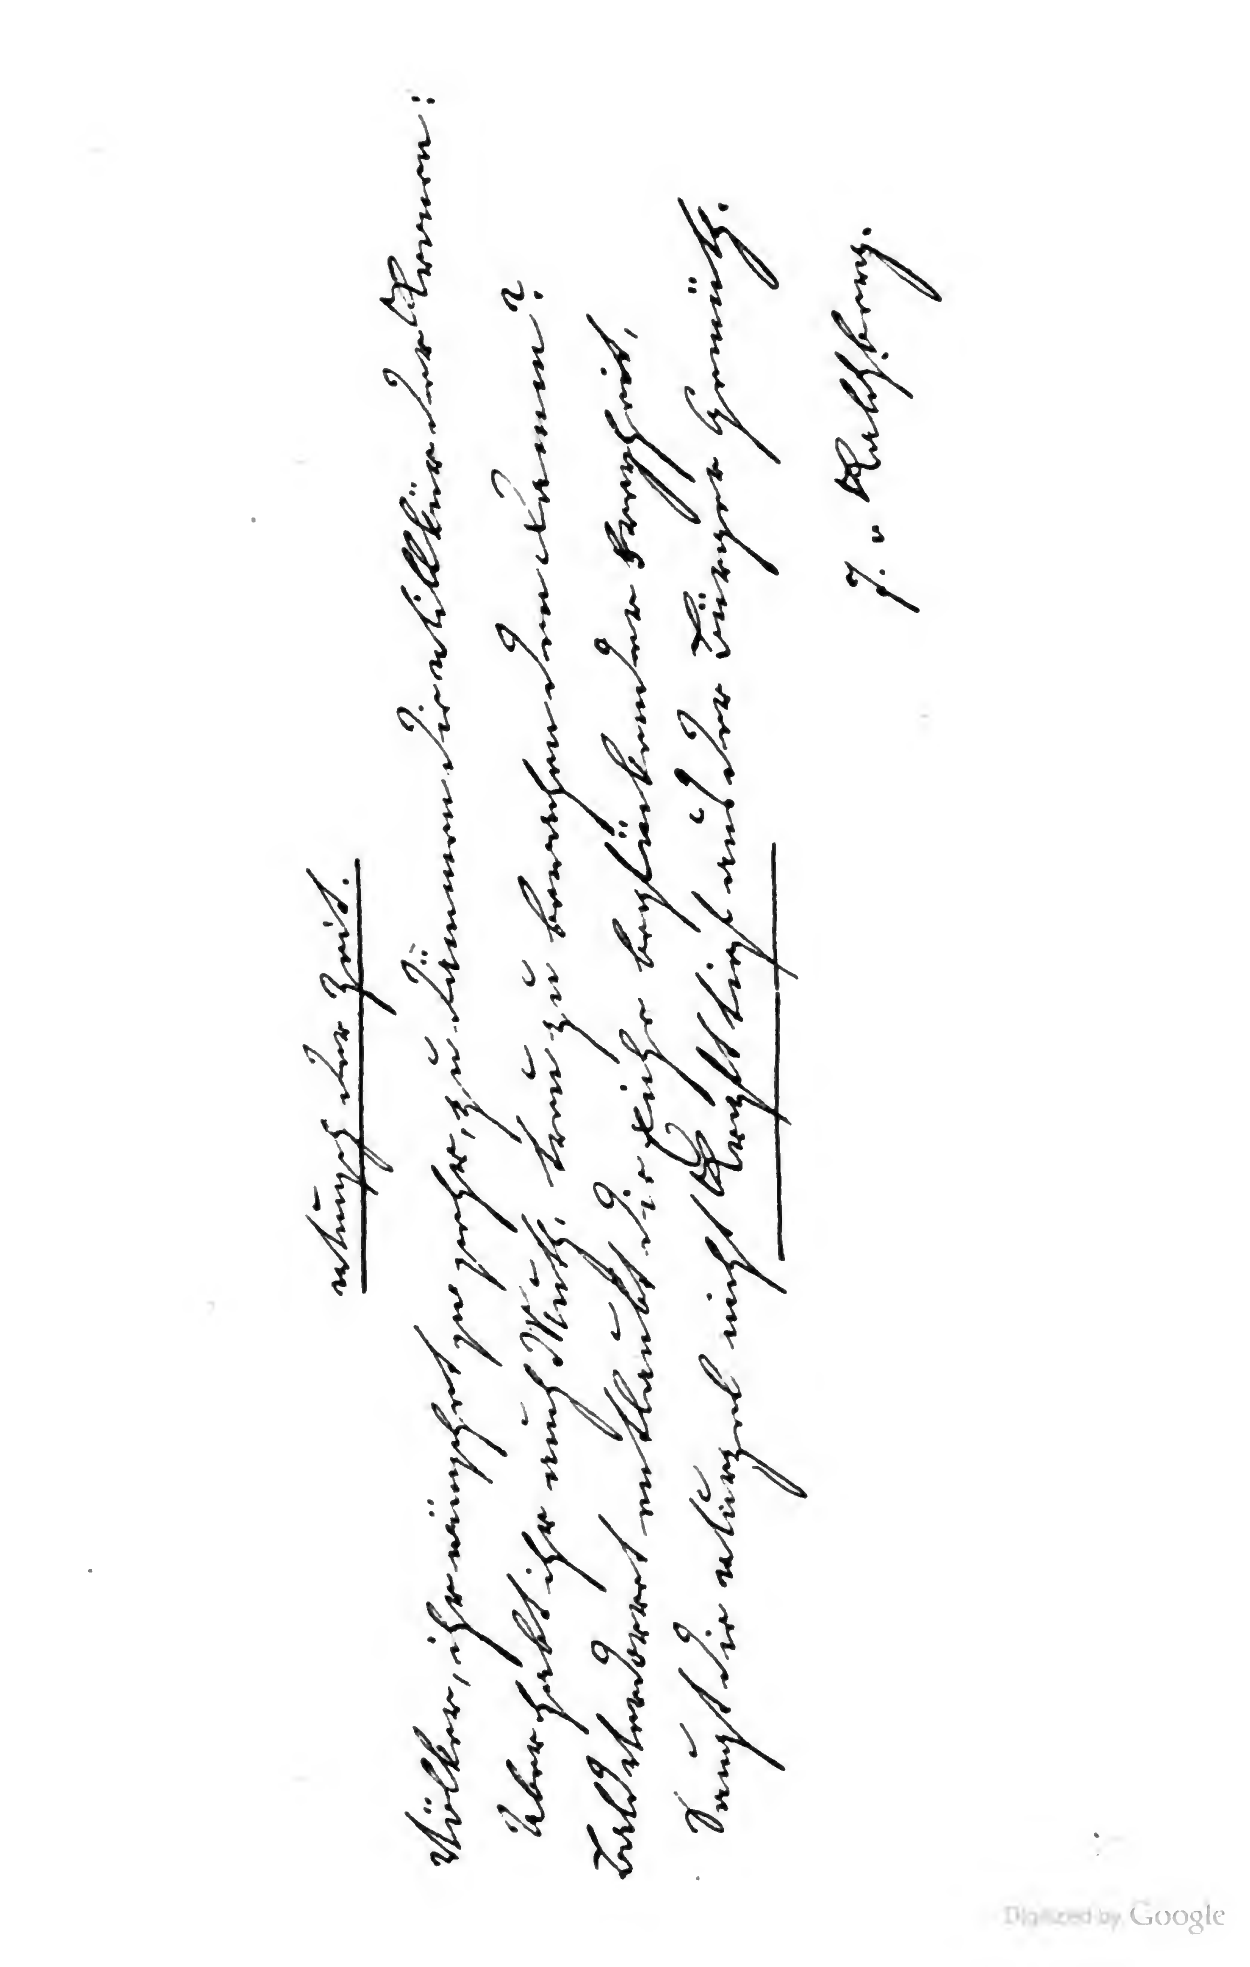 Wunsch der Zeit.
Völker, ihr wünschet zu dämmen die Willkür der Kronen:
Aber habt ihr auch Muth, treu zu bewachen den Damm?
Bald verdorrt entlaubt die Eiche beglückender Freyheit,
Saugt die Wurzel nicht Kraft sich aus der Bürger Gemüth.
J. v Kalchberg.
Digitized by Google